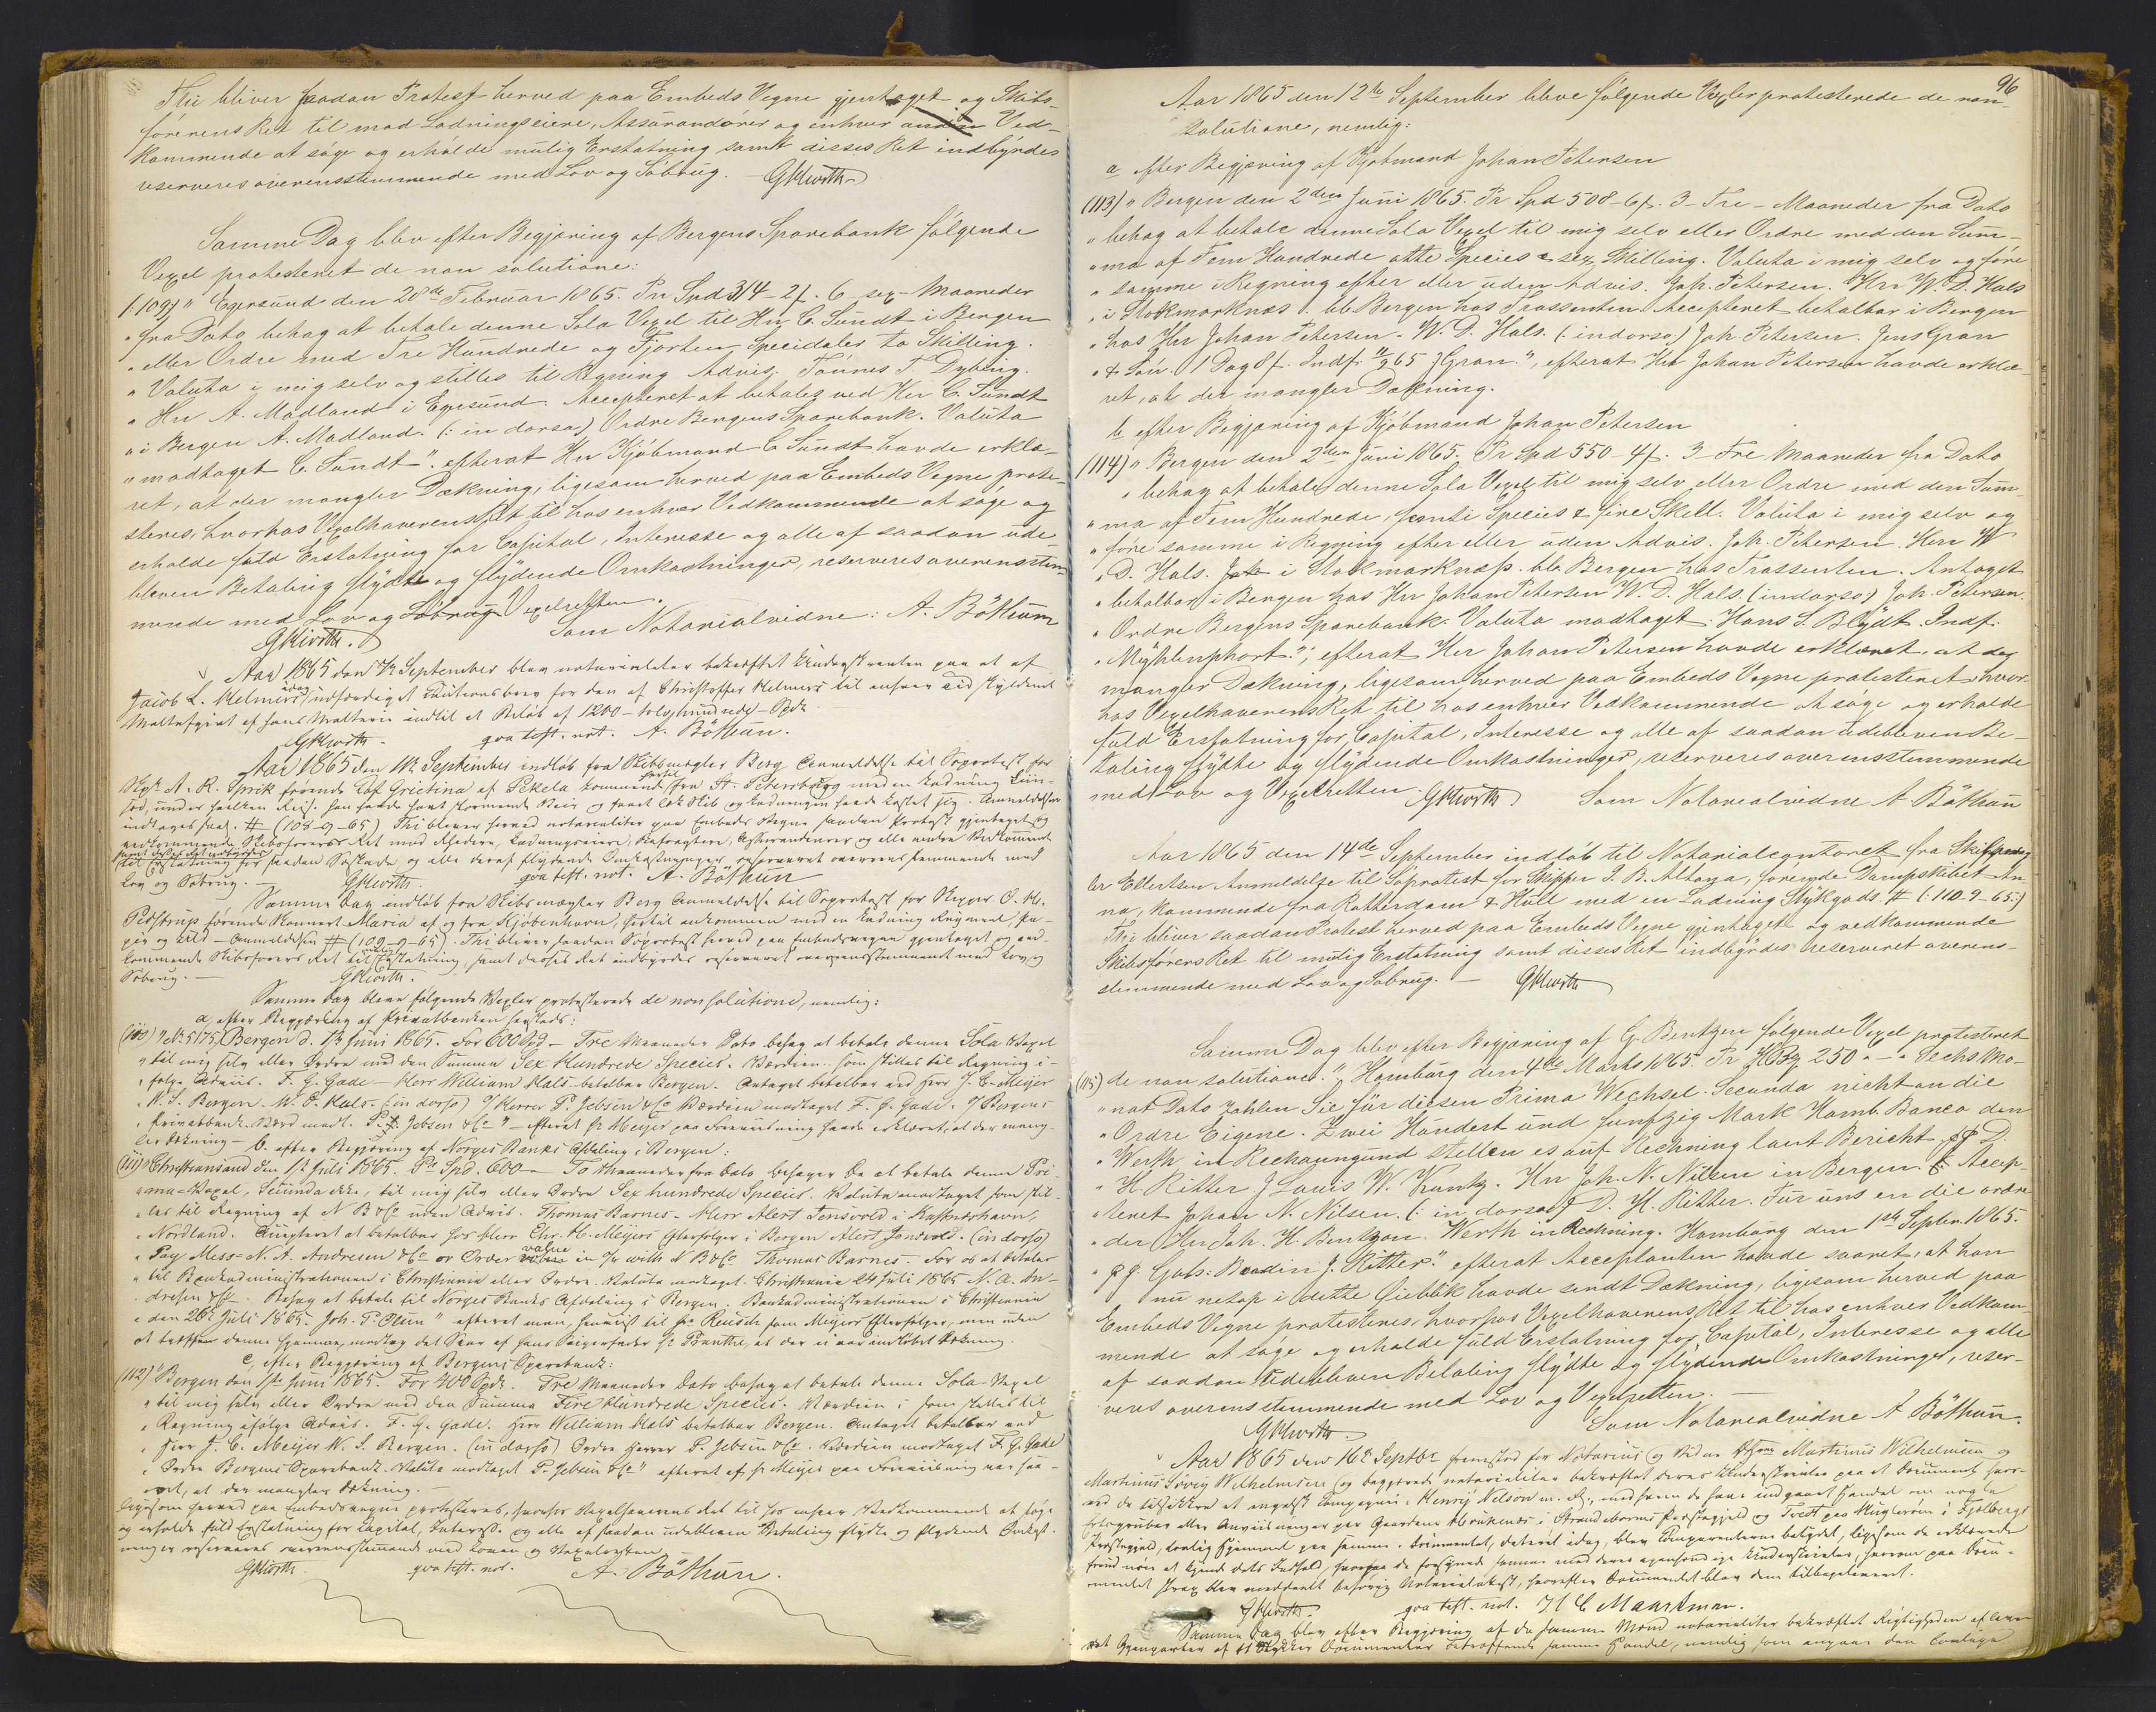 Thi bliver saadan Protest herved paa Embeds Vegne gjentaget og Skibs-
førerens Ret til mod Ladningseiere, Assurandører og enhver anden Ved-
kommende at søge og erholde mulig Erstatning samt disses Ret indbyrdes
reserveres overensstemmende med Lov og Søbrug. GKierth
Samme Dag blev efter Begjæring af Bergens Sparebank følgende
Vexel protesteret de non solutione:
(:109) " Egersund den 28de Februar 1865. Pr Spd 314-2ſ. 6 sex Maaneder
" fra Dato behag at betale denne Sola Vexel til Hr C. Sundt i Bergen
" eller Ordre med Tre Hundrede og Fjorten Speciedaler to Skilling.
" Valuta i mig selv og stilles til Regning Advis. Tønnes T Dybing.
" Hr A. Madland i Egersund. Accepteret at betales ved Hr C. Sundt
" i Bergen A. Madland. (: in dorso) Ordre Bergens Sparebank. Valuta
" modtaget C. Sundt". efterat Hr Kjøbmand C Sundt havde erklæ-
ret, at der mangler Dækning, ligesom herved paa Embeds Vegne prote-
steres, hvorhos Vexelhaverens Ret til hos enhver Vedkommende at søge og
erholde fuld Erstatning for Capital, Interesse og alle af saadan ude-
bleven Betaling flydte og flydende Omkostninger, reserveres overensstem-
mende med Lov og Søbrug Vexelretten.
GKierth. Som Notarialvidne: A. Bøthun
Aar 1865 den September blev notarialiter bekræftet Underskriften paa et af
Jacob L. Helmers idag udfærdiget Kautionsbrev for den af Christopher Helmers til enhver Tid skyldende
Maltafgivt af hans Malteri indtil et Beløb af 1200 - tolvhundrede - Spdr
GKierth. qva test. not. A. Bøthun.
Aar 1865 den September indløb fra Skibsmægler Berg Anmeldelse til Søprotest for
Kpt. A. R. Sprik førende Grietina af Pekela kommende hertil fra St. Petersborg med en Ladning
indtages saal. # (108-9-65) Thi bliver herved notarialiter paa Embeds Vegne saadan Protest gjentaget og
vedkommende Skibsførers Ret mod Rhedere, Ladningseiere, Befragtere, Assurandeurer og alle andre Vedkommende
til Erstatning for saadan Søskade, og alle deraf flydende Omkostninger, reserveret overensstemmende med
Lov og Søbrug. GKierth. qva test. not. A. Bøthun
Samme Dag indløb fra Skibsmægler Berg Anmeldelse til Søprotest for Skipper
førende Skonnert Maria af og fra Kjøbenhavn, hertil ankommen med en Ladning
Anmeldelsen # (109-9-65). Thi bliver saadan Søprotest herved paa Embedsvegne gjentaget og ved-
kommende Skibsførers Ret til Erstatning, samt disses Ret indbyrdes reserveret overensstemmende med Lov og
Søbrug. GKierth.
Samme Dag bleve følgende Vexler protesterede de non solutione, nemlig:
a, efter Begjæring af Privatbanken hersteds:
(110) " No 5175. Bergen d. Juni 1865. For 600 Spd - Tre Maaneder Dato behag at betale denne Sola Vexel
" til mig selv eller Ordre med den Summa Sex Hundrede Species. Værdien, som stilles til Regning i-
" følge Advis. F. G. Gade - Herr William Hals betalbar Bergen. Antaget betalbar ved Herr J. C. Meijer
" Bergen. W. D. Hals. (in dorso) Herrer P. Jebsen & Co Værdien modtaget F. G. Gade. Bergens
" Privatbank. Værd modt. P. Jebsen & Co" - efterat Hr Meijer paa Foreviisning havde erklæret, at der mang-
ler Dækning - b. efter Begjæring af Norges Banks Afdeling i Bergen:
(111) " Christiansund den 1ste Juli 1865. Pr Spd. 600 - To Maaneder fra Dato behager De at betale denne Pri-
" ma-Vexel, Secunda ikke, til mig selv eller Ordre Sex hundrede Species. Valuta modtaget som stil-
" les til Regning af N B & Co uden Advis. Thomas Barnes - Herr Alert Jensvold i
" Nordland. Antaget at betalbar hos Herr Chr. H. Meijers Efterfølger i Bergen Alert Jensvold. (in dorso)
" Pay Mess. N. A. Andresen & Co or Order value in with N B & Co Thomas Barnes. For os at betale
" til Bankadministrationen i Christiania eller Ordre. Valuta modtaget. Christiania 24 Juli 1865 N. A. An-
" dresen & Co. Behag at betale til Norges Banks Afdeling i Bergen. Bankadministrationen i Christiania
" den 26 Juli 1865. Joh. T. Olsen" efterat man, henvist til Hr Reusch som Meijers Efterfølger, men uden
at træffe denne hjemme, modtog det Svar af hans Svigerfader Hr Krauthe, at der ei var indløbet Dækning
c, efter Begjæring af Bergens Sparebank:
(112) " Bergen den 1ste Juni 1865. For 400 Spdr. Tre Maaneder Dato behag at betale denne Sola-Vexel
" til mig selv eller Ordre med den Summa Fire Hundrede Species. Værdien i som stilles til
" Regning ifølge Advis. F. G. Gade. Herr William Hals betalbar Bergen. Antaget betalbar ved
" Herr J. C. Meijer Bergen. (in dorso) Ordre Herrer P. Jebsen & Co. Værdien modtaget F. G. Gade
" Ordre Bergens Sparebank. Valuta modtaget P. Jebsen & Co" efterat af Hr Meijer paa Foreviisning var sva-
ret, at der mangler Dækning. -
ligesom herved paa Embedsvegne protesteres, hvorhos Vexelhaverens Ret til hos enhver Vedkommende at søge
og erholde fuld Erstatning for Capital, Interesse og alle af saadan udebleven Betaling flydte og flydende Omkost-
ninger reserveres overensstemmende med Loven og Vexelretten
GKierth. qva test. not. A. Bøthun.
96
Aar 1865 den 12te September bleve følgende Vexler protesterede de non
solutione, nemlig:
a efter Begjæring af Kjøbmand Johan Petersen
(113) " Bergen den 2den Juni 1865. Pr Spd 508-6ſ. 3-Tre-Maaneder fra Dato
" behag at betale denne Sola Vexel til mig selv eller Ordre med den Sum-
" ma af Fem Hundrede otte Species & sex Skilling. Valuta i mig selv og føre
" samme i Regning efter eller uden Advis. Joh. Petersen. Hr W. D. Hals
" i Stokmarknæs bb Bergen hos Trassenten Accepteret betalbar i Bergen
" hos Hr Johan Petersen - W. D. Hals. (: indorso:) Joh. Petersen. Jens Gran
" & Søn. 1 Dag 8ſ. Indf. 11/9 65 JGran.", efterat Hr Johan Petersen havde erklæ-
ret, at der mangler Dækning.
b efter Begjæring af Kjøbmand Johan Petersen
(114) " Bergen den 2den Juni 1865. Pr Spd 550-4ſ. 3-Tre Maaneder fra Dato
" behag at betale denne Sola Vexel til mig selv eller Ordre med den Sum-
" ma af Fem Hundrede, femti Species & fire Skill. Valuta i mig selv og
" føre samme i Regning efter eller uden Advis. Joh. Petersen. Herr W
" D. Hals. i Stokmarknæs. bb Bergen hos Trassenten. Antaget
" betalbar i Bergen hos Hr Johan Petersen W. D. Hals. (indorso) Joh. Petersen.
" Ordre Bergens Sparebank. Valuta modtaget Hans S. Blydt. Indf.
" Myhlenphort.", efterat Hr Johan Petersen havde erklæret, at der
mangler Dækning, ligesom herved paa Embeds Vegne protesteret hvor-
hos Vexelhaverens Ret til hos enhver Vedkommende at søge og erholde
fuld Erstatning for Capital, Interesse og alle af saadan udebleven Be-
taling flydte og flydende Omkostninger, reserveres overensstemmende
med Lov og Vexelretten. GKierth Som Notarialvidne A Bøthun
Aar 1865 den 14de September indløb til Notarialcontoret fra Skibsmæg-
ler Ellertsen Anmeldelse til Søprotest for Skipper J. B. Altona, førende Dampskibet An-
na, kommende fra Rotterdam & Hull med en Ladning Stykgods. # (:110-9-65:)
Thi bliver saadan Protest herved paa Embeds Vegne gjentaget og vedkommende
Skibsførers Ret til mulig Erstatning samt disses Ret indbyrdes reserveret overens-
stemmende med Lov og Søbrug. - GKierth
Samme Dag blev efter Begjæring af G. Bentzen følgende Vexel protesteret
(115) de non solutione. " Hamburg den 4de Marts 1865. Pr 250 " - " Sechs Mo-
" nat Dato zahlen Sie für diesen Prima Wechsel. Secunda nicht an die
" Ordre Eigene. Zwei Hundert und funfzig Mark Hamb. Banco den
" Werth in Rechnung und stellen es auf Rechnung laut Bericht D.
" H. Ritter J Louis W. Kuntz. Hr Joh. N. Nilsen in Bergen. Accep-
" teret Johan N. Nilsen. (: in dorso D. H. Ritter. Für uns en die ordre
" der Hr Joh. H. Bentzon. Werth in Rechnung. Hamburg den 1ste Septbr. 1865.
" Ritter". efterat Acceptanten havde svaret, at han
nu netop i dette Øieblik havde sendt Dækning, ligesom herved paa
Embeds Vegne protesteres, hvorhos Vexelhaverens Ret til hos enhver Vedkom-
mende at søge og erholde fuld Erstatning for Capital, Interesse og alle
af saadan udebleven Betaling flydte og flydende Omkostninger, reser-
veres overensstemmende med Lov og Vexelretten. -
GKierth. Som Notarialvidne A Bøthun.
Aar 1865 den 16de Septbr fremstod for Notarius og Vidne Martinus Wilhelmsen og
Martinus Søvig Wilhelmsen og begjærede notarialiter bekræftet deres Underskrifter paa et Document hvor-
ved de tilsikkre et engelsk Compagni: Henry Nelson m. fl., med hvem de have indgaaet Handel om nogle
i Fjelberg
Præstegjeld, samme. Documentet, dateret idag, blev Comparenterne betydet, ligesom de erklærede
mentet strax blev meddeelt behørig Notarialattest, hvorefter Documentet blev dem tilbageleveret.
GKierth. qva test. not. H C Maartman.
Samme Dag blev efter Begjæring af de samme Mænd notarialiter bekræftet Rigtigheden af
Gjenparter af Stykker Documenter betræffende samme Handel, nemlig